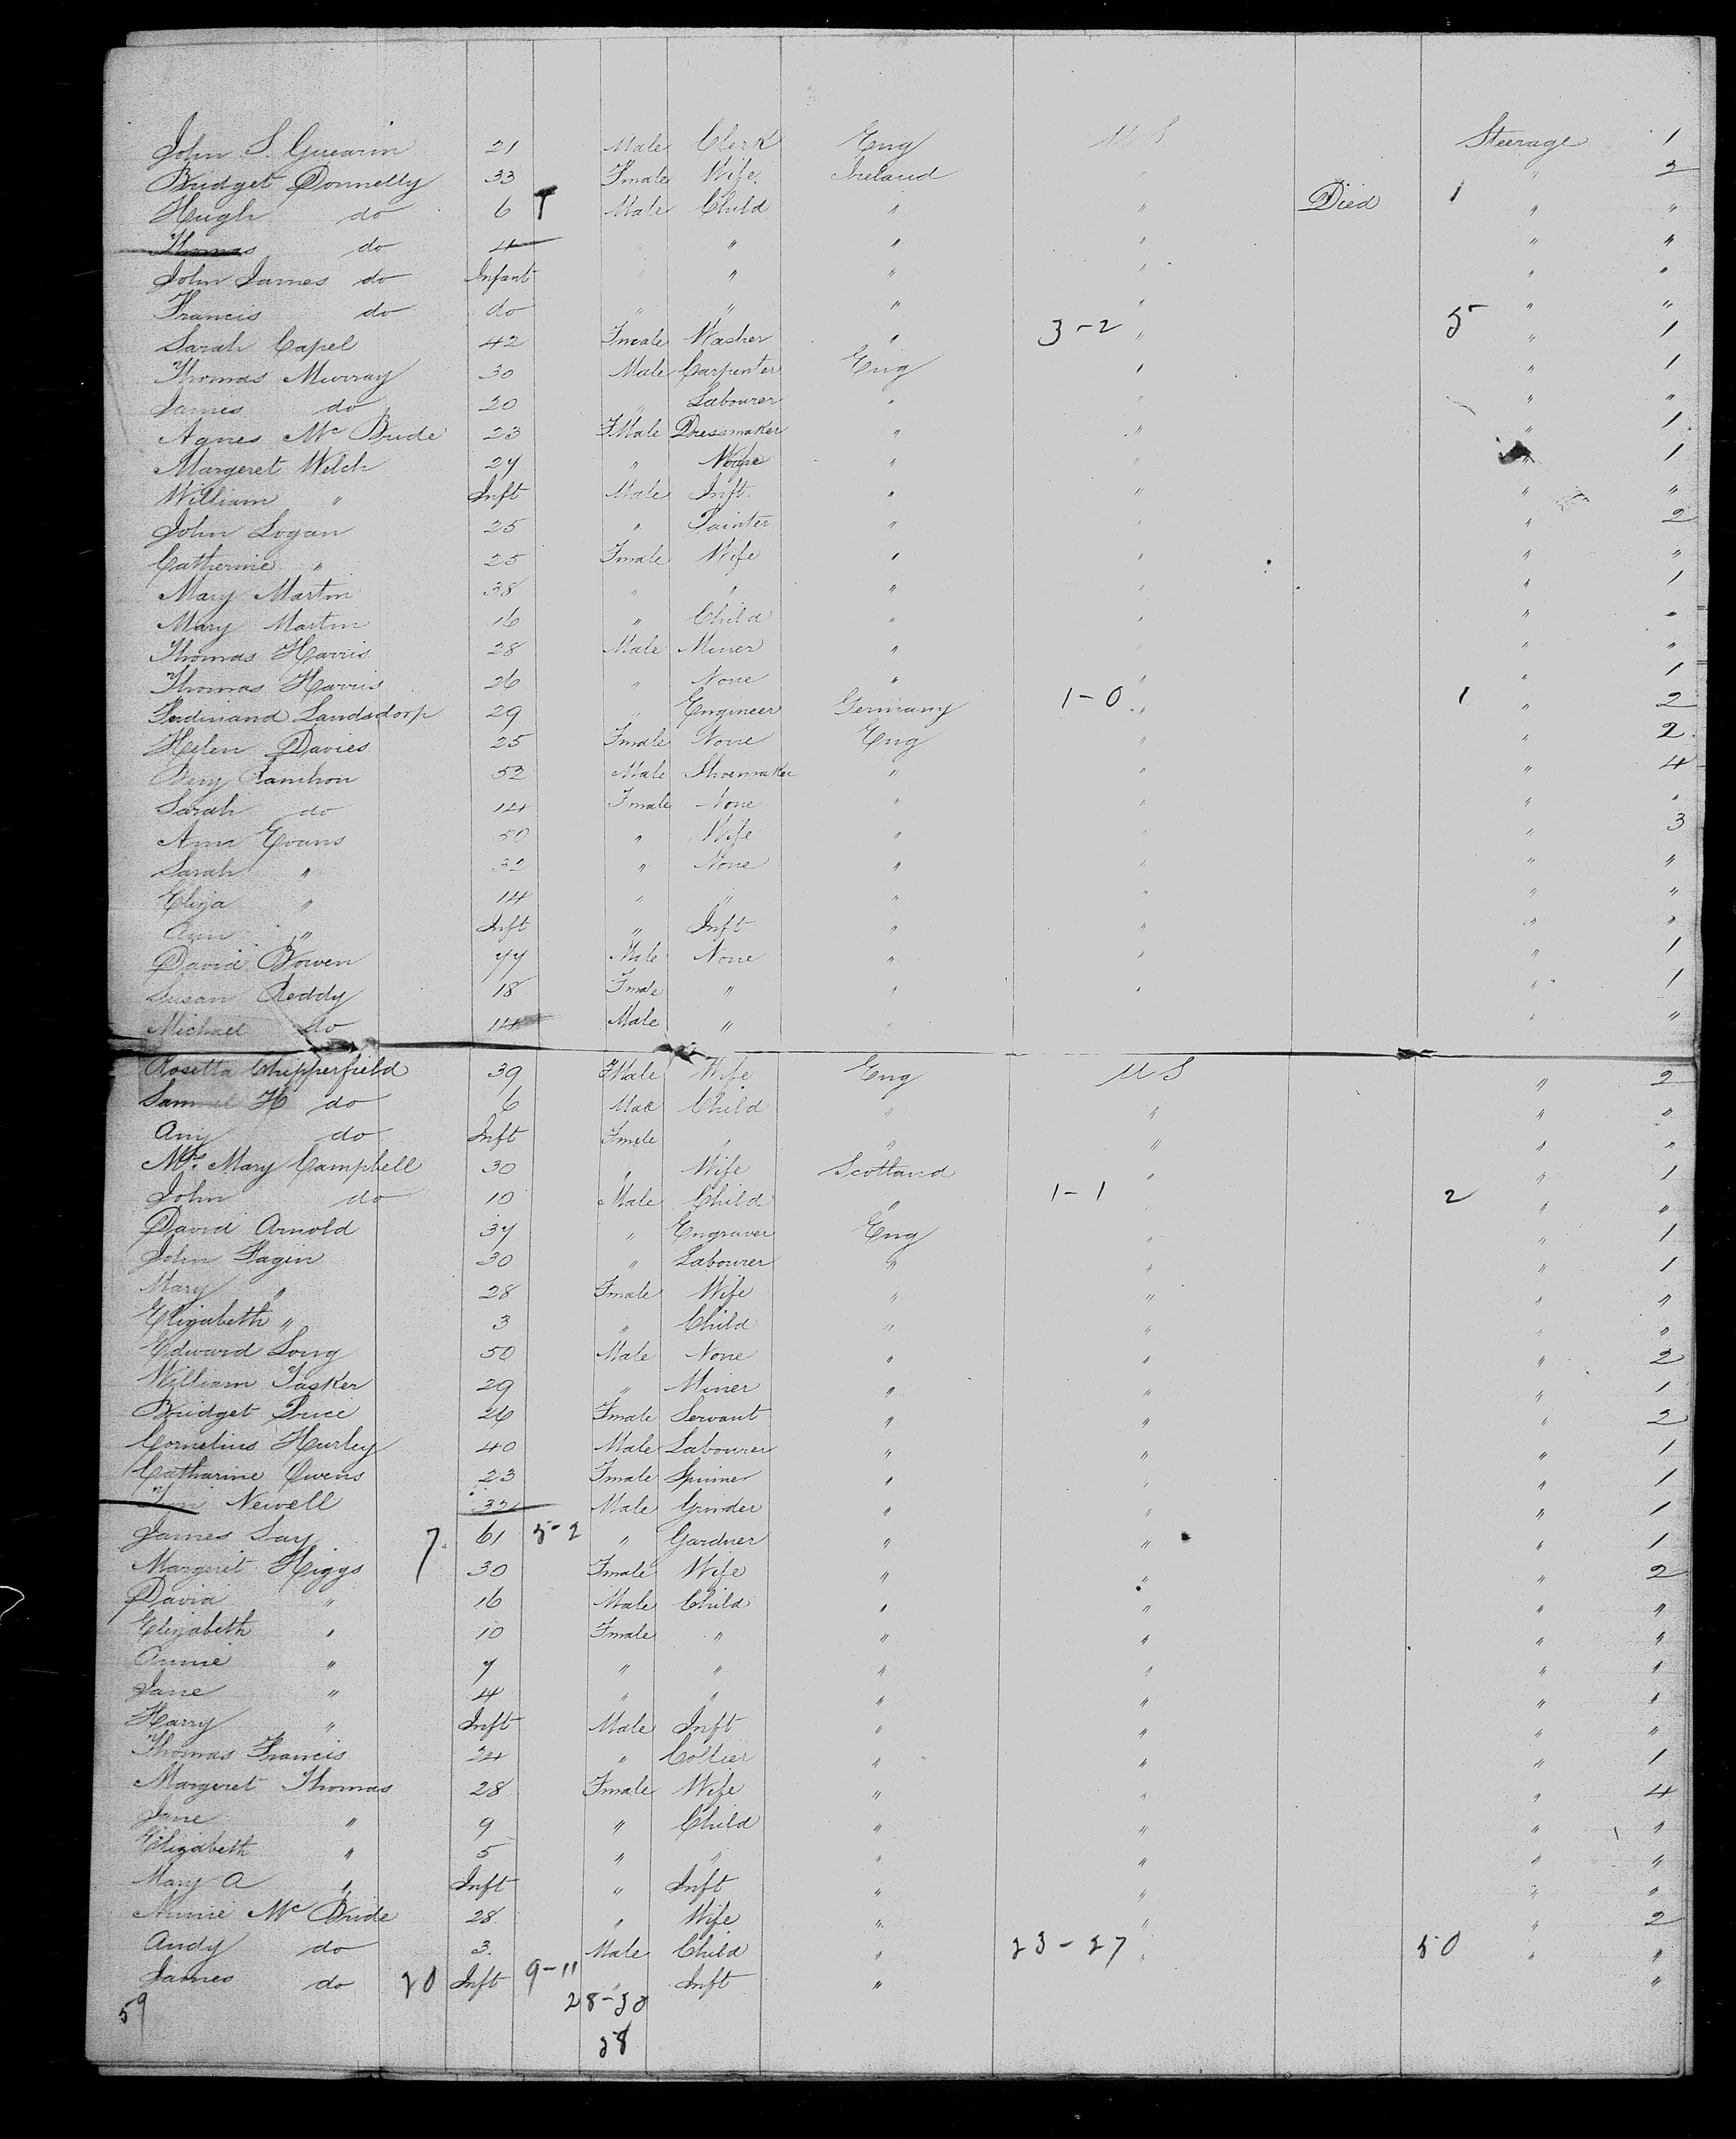 John S. Guearin 21 Male Clerk Eng U S. Steerage 1
Bridget Donnelly 33 Fmale Wife Ireland " " 2
Hugh do 6 Male Child " " Died 1 " "
Thomas do 4 " " " " " "
John James do Infant " " " " " "
Francis do do " " " " " "
Sarah Capel 42 Fmale Washer " 3-2 " 5 " 1
Thomas Murray 30 Male Carpenter Eng " " 1
James do 20 " Labourer " " " "
Agnes Mc Bride 23 FMale Dressmaker " " " 1
Margeret Welch 27 " " " " 1
William " Inft Male Inft. " " " "
John Logan 25 " Painter " " " 2
Catherine " 25 Fmale Wife " " " "
Mary Martin 38 " " " " " 1
Mary Martin 16 " Child " " " "
Thomas Harris 28 Male Miner " " " "
Thomas Harris 26 " None " " " 1
Ferdinand Landsdorp 29 " Engineer Germany 1-0 " 1 " 2
Helen Davies 25 Fmale None Eng " " 2
52 Male Shoemaker " " " 4
Sarah do 14 Fmale None " " " "
Ann Evans 50 " Wife " " " 3
Sarah " 32 " None " " " "
Eliza " 14 " " " " " "
Ann " Inft " Inft " " " "
David Bowen 77 Male None " " " 1
Susan Reddy 18 Fmale " " " " 1
Michael do 14 Male " " " "
Rosetta Chipperfield 39 FMale Wife Eng U S " 2
Samuel H do 6 Male Child " " " "
Any do Inft Fmale " " " " "
Mrs. Mary Campbell 30 " Wife Scotland " " 1
John do 10 Male Child " 1-1 " 2 " "
David Arnold 37 " Engraver Eng " " 1
John Fagin 30 " Labourer " " " 1
Mary " 28 Fmale Wife " " " "
Elizabeth " 3 " Child " " " "
Edward Long 50 Male None " " " 2
William Tasker 29 " Miner " " " 1
Bridget Price 26 Fmale Servant " " " 2
Cornelius Hurley 40 Male Labourer " " " 1
Catharine Owens 23 Fmale Spinner " " " 1
Newell 32 Male Grinder " " " 1
James Say 7. 61 5-2 " Gardner " " " 1
Margeret Higgs 30 Fmale Wife " " " 2
David " 16 Male Child " " " "
Elizabeth " 10 Fmale " " " " "
Annie " 7 " " " " " "
Jane " 4 " " " " " "
Harry " Inft Male Inft " " " "
Thomas Francis 24 " Collier " " " 1
Margeret Thomas 28 Fmale Wife " " " 4
Jane " 9 " Child " " " "
Elizabeth " 5 " " " " " "
Mary A " Inft " Inft " " " "
Annie Mc Bride 28. " Wife " " " 2
Andy do 3. Male Child " 23-27 " 50 " "
James do 20 Inft 9-11 " Inft " "
59 28-30
28